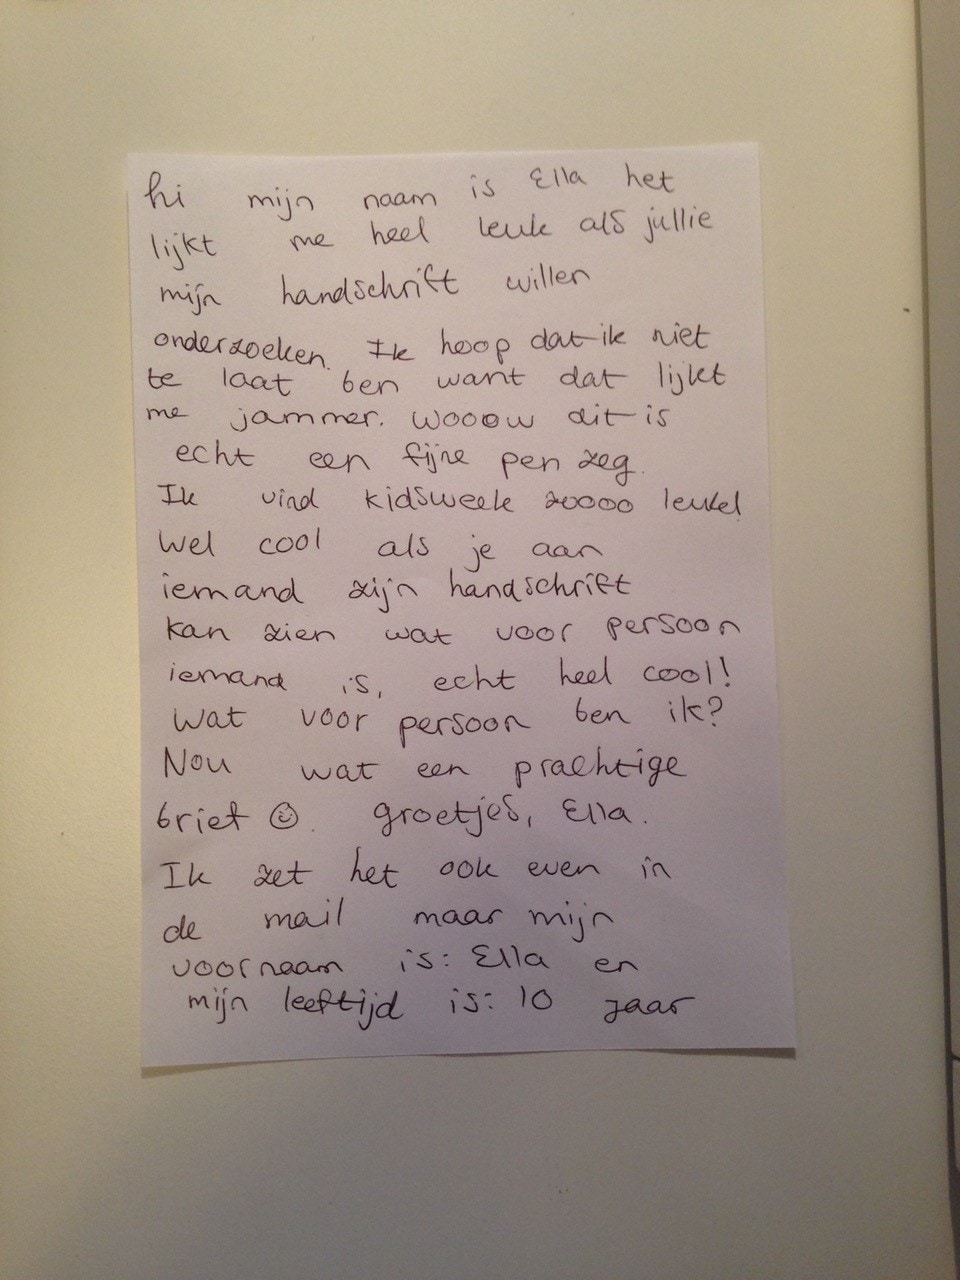 hi mijn naam is Ella het
lijkt me heel leuk als jullie
mijn handschrift willen
onderzoeken. Ik hoop dat ik niet
te laat ben want dat lijkt
me jammer. wooow dit is
echt een fijne pen zeg.
Ik vind kidsweek zoooo leuk!
Wel cool als je aan
iemand zijn handschrift
kan zien wat voor persoon
iemand is, echt heel cool!
Wat voor persoon ben ik?
Nou wat een prachtige
brief ☺. groetjes, Ella.
Ik zet het ook even in
de mail maar mijn
voornaam is: Ella en
mijn leeftijd is: 10 jaar